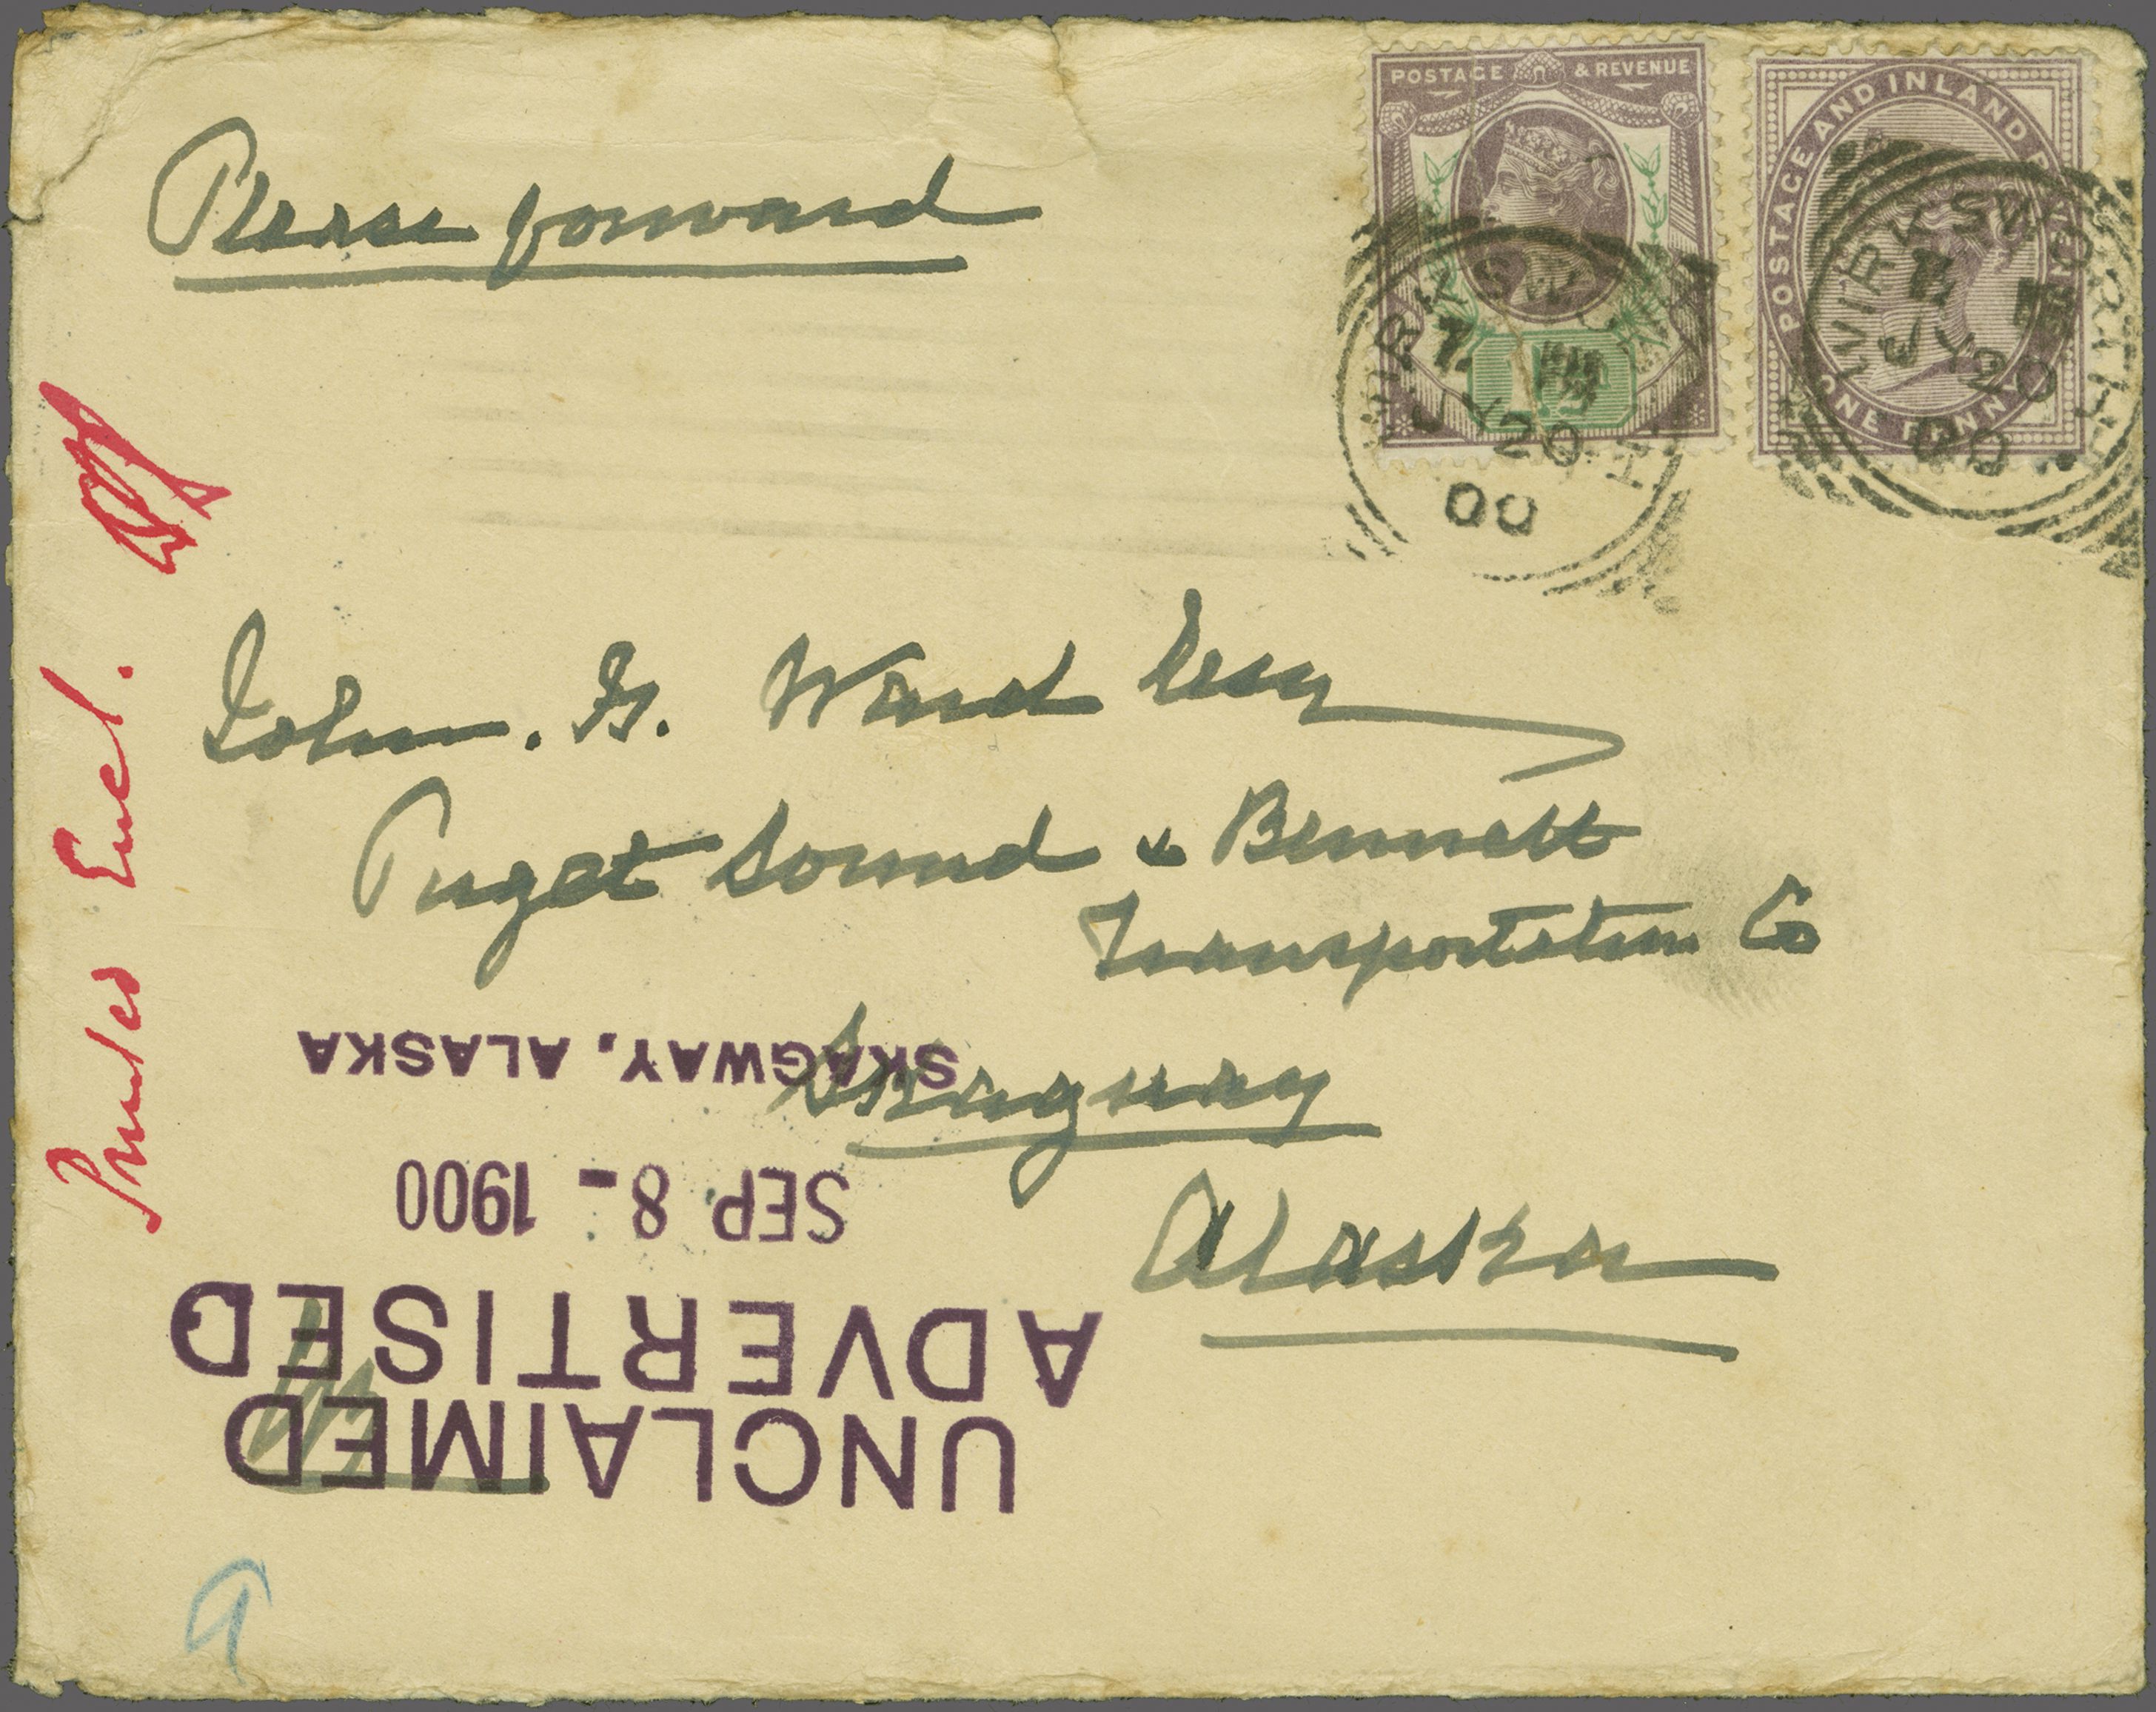 POSTAGE & REVENUE
POSTAGE AND INLAND REVENUE
ONE PENNY
WIRKSWORTH
JY 20
00
WIRKSWORTH
JY 20
00
Please forward
John. G. Ward Esq
Puget Sound & Bennett
Transportation Co
Skaguay
Alaska
Printed Encl.
SKAGWAY, ALASKA
SEP 8 - 1900
ADVERTISED
UNCLAIMED